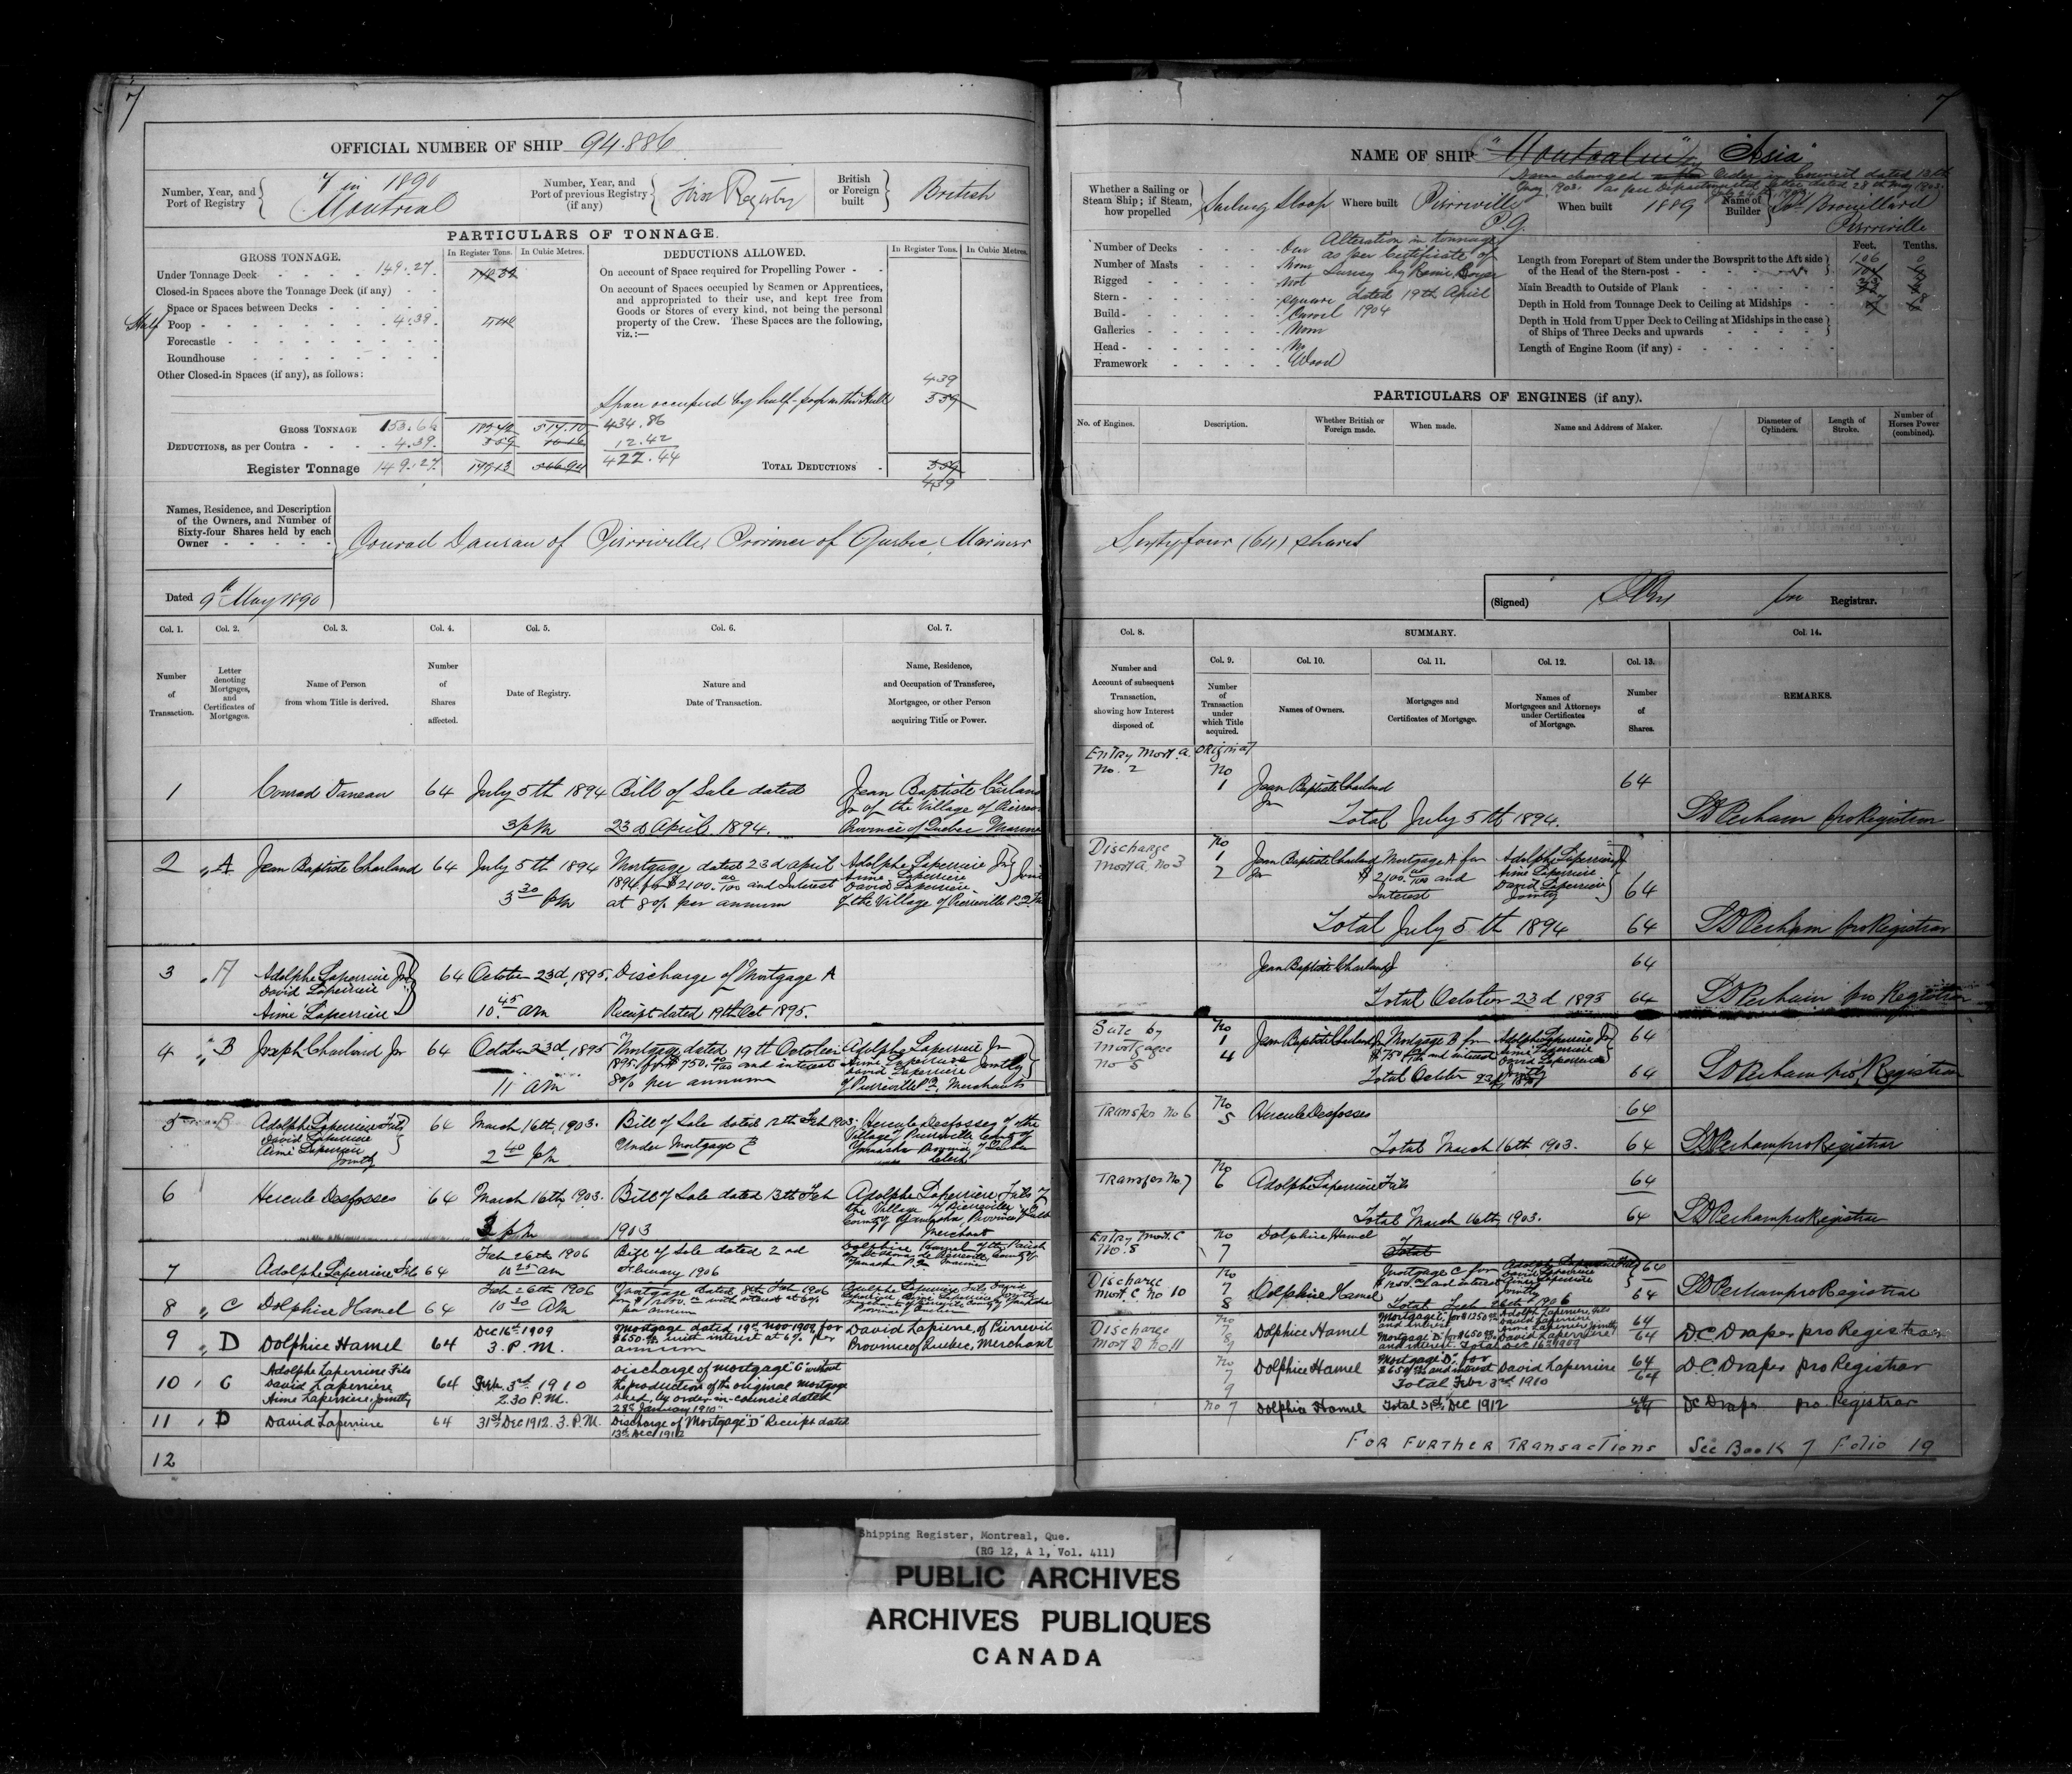 7
OFFICIAL NUMBER OF SHIP 94.886
Number, Year, and Port of Registry
7 in 1890
Montreal
Number, Year, and Port of previous Registry (if any)
First Registry
British or Foreign built
British
PARTICULARS OF TONNAGE.
GROSS TONNAGE.
In Register Tons.
In Cubic Metres.
DEDUCTIONS ALLOWED.
In Register Tons.
In Cubic Metres.
Under Tonnage Deck 149.27
Closed-in Spaces above the Tonnage Deck (if any)
Space or Spaces between Decks
Half Poop 4.39
Forecastle
Roundhouse
Other Closed-in Spaces (if any), as follows:
On account of Space required for Propelling Power
On account of Spaces occupied by Seamen or Apprentices, and appropriated to their use, and kept free from Goods or Stores of every kind, not being the personal property of the Crew. These Spaces are the following, viz.:—
Space occupied by half-poop
439
559
GROSS TONNAGE 153.66
517.10
434.86
DEDUCTIONS, as per Contra 4.39
559
12.42
Register Tonnage 149.27
422.44
TOTAL DEDUCTIONS
559
439
Names, Residence, and Description of the Owners, and Number of Sixty-four Shares held by each Owner
Conrad Daneau of Pierreville, Province of Quebec, Mariner
Dated 9th May 1890
Col. 1.
Col. 2.
Col. 3.
Col. 4.
Col. 5.
Col. 6.
Col. 7.
Number of Transaction.
Letter denoting Mortgages, and Certificates of Mortgages.
Name of Person from whom Title is derived.
Number of Shares affected.
Date of Registry.
Nature and Date of Transaction.
Name, Residence, and Occupation of Transferee, Mortgagee, or other Person acquiring Title or Power.
1 Conrad Daneau 64 July 5th 1894 Bill of Sale dated Jean Baptiste Charland
3 p m 23d April 1894. Jr of the Village of
Province of Quebec
2 A Jean Baptiste Charland 64 July 5th 1894 Mortgage dated 23d april Adolphe Laperriere Jr
1894 for $2100.00/100 and Interest Aime Laperriere
3 30 pm at 8% per annum David Laperriere
of the Village of Pierreville P.Q.
3 A Adolphe Laperriere Jr 64 October 23d, 1895. Discharge of Mortgage A
David Laperriere
Aimé Laperriere 10.45 am Receipt dated 19th Oct 1895.
4 B Joseph Charland Jr 64 October 23d, 1895 Mortgage dated 19th October Adolphe Laperriere Jr
1895 for $750.00/100 and interest Aime Laperriere
David Laperriere Jointly
11 am 8% per annum of Pierreville P.Q. Merchants
5 B Adolphe Laperriere Fils 64 March 16th, 1903. Bill of Sale dated 12th Feb 1903. Hercule Desfosses of the
David Laperriere Village of Pierreville County of
Aimé Laperriere 2 40 pm Under Mortgage B Yamaska Province of Quebec
Jointly Clerk
6 Hercule Desfosses 64 March 16th, 1903. Bill of Sale dated 13th Feb Adolphe Laperriere Fils of
the Village of Pierreville
County of Yamaska, Province of
3 pm 1903 Merchant
7 Adolphe Laperriere Fils 64 Feb 26th 1906 Bill of Sale dated 2nd Dolphice Hamel of the Parish
10 25 am February 1906
8 C Dolphice Hamel 64 Feb 26th 1906 Mortgage dated 8th Feb 1906
10 30 AM for $1250.00 with interest at 6% per annum
9 D Dolphice Hamel 64 Dec 16th 1909 Mortgage dated 19th Nov 1909 for David Lapierre, of Pierreville
3. P.M. $650.00 with interest at 6% per annum Province of Quebec, Merchant
10 C Adolphe Laperriere Fils 64 Feb. 3rd 1910 Discharge of mortgage "C" without
David Laperriere 2.30 P.M. the production of the original mortgage
Aime Laperriere, Jointly deed by order-in-council dated
28th January 1910
11 D David Laperriere 64 31st Dec 1912. 3. P.M. Discharge of Mortgage "D" Receipt dated
13th Dec 1912
12
7
NAME OF SHIP "Asia"
Name changed Order in Council dated 13th
1903. as per Department letter dated 28th May 1903.
Whether a Sailing or Steam Ship; if Steam, how propelled
Sailing Sloop
Where built
Pierreville
P.Q.
When built
1889
Name of Builder
Brouillard
Pierreville
Number of Decks One
Number of Masts None
Rigged Not
Stern Square
Build Carvel
Galleries None
Head No
Framework Wood
Alteration in tonnage
as per Certificate of
Survey by
dated 19th April
1904
Feet.
Tenths.
Length from Forepart of Stem under the Bowsprit to the Aft side of the Head of the Stern-post 106 0
Main Breadth to Outside of Plank
Depth in Hold from Tonnage Deck to Ceiling at Midships
Depth in Hold from Upper Deck to Ceiling at Midships in the case of Ships of Three Decks and upwards
Length of Engine Room (if any)
PARTICULARS OF ENGINES (if any).
No. of Engines.
Description.
Whether British or Foreign made.
When made.
Name and Address of Maker.
Diameter of Cylinders.
Length of Stroke.
Number of Horses Power (combined).
Sixty four (64) shares
(Signed)
for Registrar.
Col. 8.
SUMMARY.
Col. 14.
Col. 9.
Col. 10.
Col. 11.
Col. 12.
Col. 13.
Number and Account of subsequent Transaction, showing how Interest disposed of.
Number of Transaction under which Title acquired.
Names of Owners.
Mortgages and Certificates of Mortgage.
Names of Mortgagees and Attorneys under Certificates of Mortgage.
Number of Shares.
REMARKS.
Entry Mort. A No. 2 Original No 1 Jean Baptiste Charland Jr 64
Total July 5th 1894. Perham pro Registrar
Discharge Mort A. No 3 No 1 2 Jean Baptiste Charland Jr Mortgage A for $2100.00/100 and Interest Adolphe Laperriere Jr
Aimé Laperriere
David Laperriere
Jointly 64
Total July 5th 1894 64 Perham pro Registrar
Jean Baptiste Charland Jr 64
Total October 23d 1895 64 Perham pro Registrar
Sale by Mortgagee No 5 No 1 4 Jean Baptiste Charland Jr Mortgage B for $750 and interest Adolphe Laperriere Jr
Aimé Laperriere
David Laperriere
Jointly 64
Total October 23d 1895 64 Perham pro Registrar
Transfer No 6 No 5 Hercule Desfosses 64
Total March 16th 1903. 64 Perham pro Registrar
Transfer No 7 No 6 Adolphe Laperriere Fils 64
Total March 16th, 1903. 64 Perham pro Registrar
Entry Mort. C No. 8 No 7 Dolphice Hamel 64
Total
Discharge Mort C No 10 No 7 8 Dolphice Hamel Mortgage C for $1250.00 and interest Adolphe Laperriere Fils
David Laperriere
Aimé Laperriere
Jointly 64
Total Feb 26th 1906 64 Perham pro Registrar
Discharge Mort D No 11 No 7 8 9 Dolphice Hamel Mortgage C, for $1250.00 and interest Adolph Laperriere, Fils
David Laperriere
Aime Laperriere Jointly 64
Mortgage "D" for $650.00 and interest David Laperriere
Total Dec 16th 1909 64 D.C. Draper pro Registrar
No 7 9 Dolphice Hamel Mortgage "D", for $650.00 and interest David Laperriere 64
Total Feb 3rd 1910 64 D.C. Draper pro Registrar
No 7 Dolphice Hamel Total 31st Dec 1912 64 DC Draper pro Registrar
FOR FURTHER TRANSACTIONS See Book 7 Folio 19
Shipping Register, Montreal, Que.
(RG 12, A 1, Vol. 411)
PUBLIC ARCHIVES
ARCHIVES PUBLIQUES
CANADA